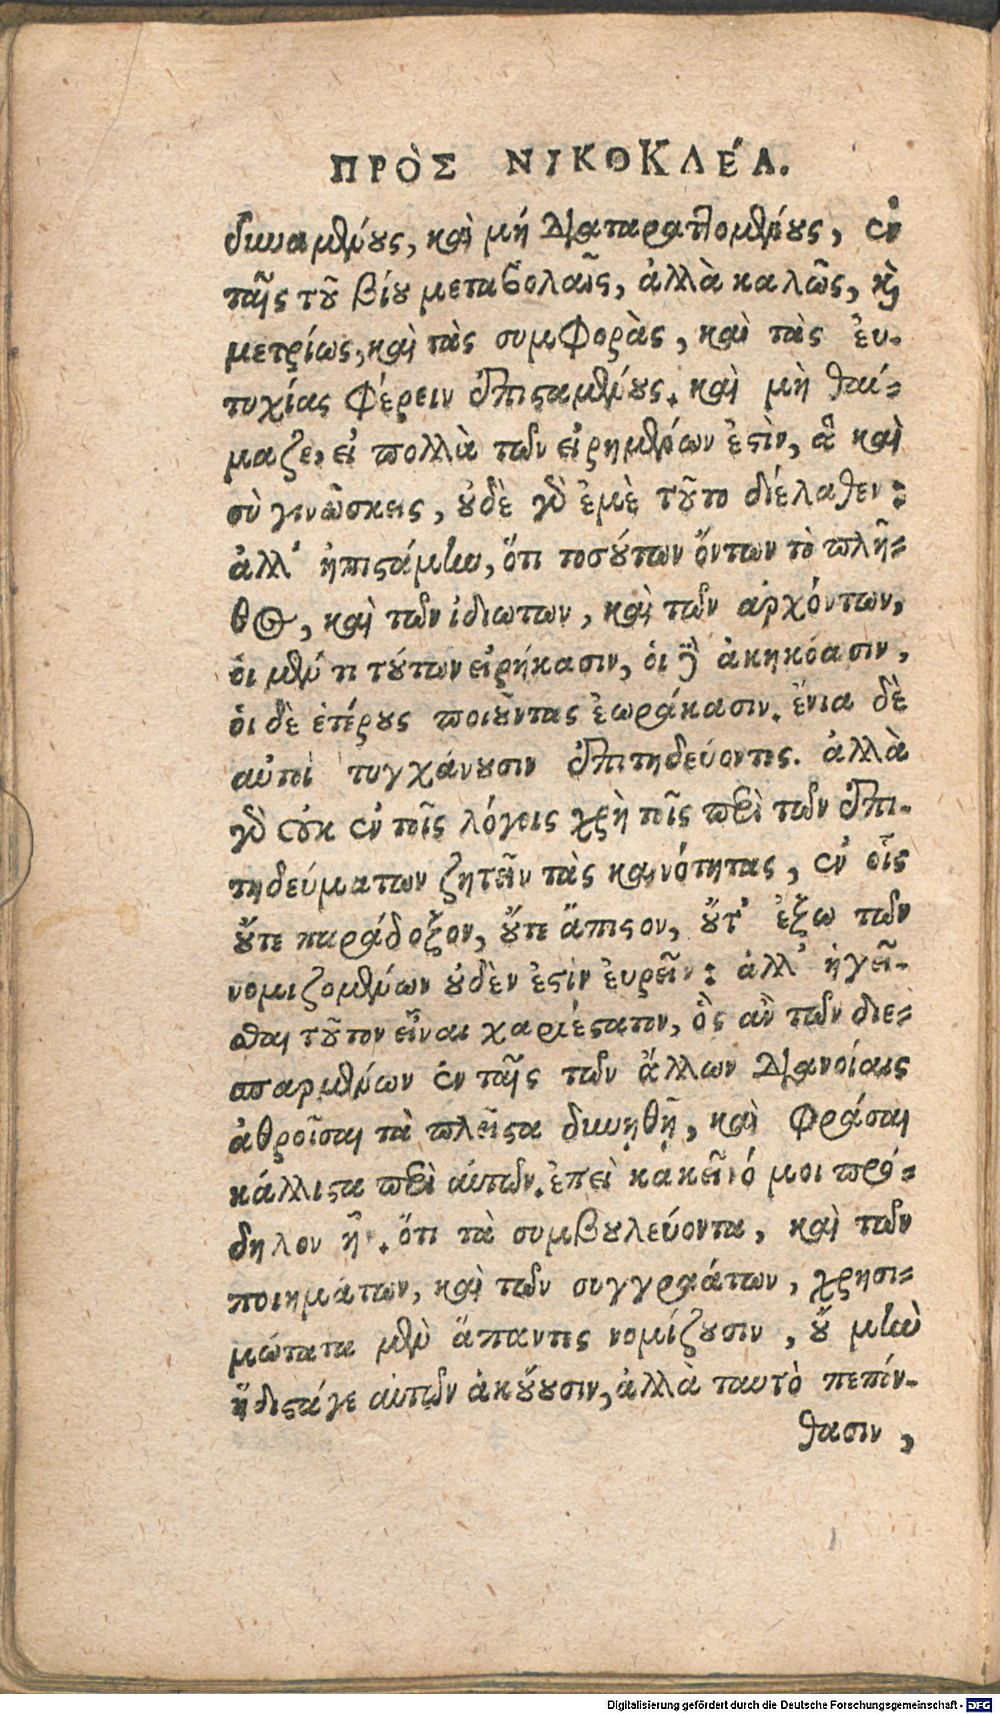 ΠΡῸΣ ΝΙΚΟΚΛΈΑ.
δυναμένους, καὶ μή διαταραττομένους, ἐν
ταῖς τοῦ βίου μεταβολαῖς, ἀλλὰ καλῶς, καὶ
μετρίως, καὶ τὰς συμφορὰς, καὶ τὰς ἐυ-
τυχίας φέρειν ἐπισταμένους. καὶ μὴ θαύ=
μαζε, εἰ πολλὰ τῶν εἰρημένων ἐστὶν, ἃ καὶ
σὺ γινώσκεις, οὐδὲ γὰρ ἐμὲ τοῦτο διέλαθεν:
ἀλλ’ ἠπιστάμην, ὅτι τοσούτων ὄντων τὸ πλῆ=
θος, καὶ τῶν ἰδιωτων, καὶ τῶν αρχόντων,
ὁι μέν τι τούτων εἰρήκασιν, ὁι δὲ ἀκηκόασιν,
ὁι δὲ ἑτέρους ποιοῦντας ἑωράκασιν. ἔνια δὲ
αὐτοὶ τυγχάνουσιν ἐπιτηδεύοντες. ἀλλὰ
γὰρ οὐκ ἐν τοῖς λόγοις χρὴ τοῖς περὶ τῶν ἐπι-
τηδεύματων ζητεῖν τὰς καινότητας, ἐν οἷς
οὔτε παράδοξον, οὔτε ἄπιστον, οὔτ’ ἐξω τῶν
νομιζομένων οὐδὲν ἐστὶν ἑυρεῖν: ἀλλ’ ἡγεῖ-
σθαι τοῦτον εἶναι χαριέστατον, ὃς ἂν τῶν διε=
σπαρμένων ἐν ταῖς τῶν ἄλλων διανοίαις
ἀθροῖσαι τὰ πλεῖστα δυνηθῇ, καὶ φράσαι
κάλλιστα περὶ αὐτῶν. ἐπεὶ κἀκεῖνό μοι πρό=
δηλον ἦν. ὅτι τὰ συμβουλεύοντα, καὶ τῶν
ποιημάτων, καὶ τῶν συγγραάτων, χρησι=
μώτατα μὲν ἅπαντες νομίζουσιν, οὔ μὴν
ἥδιστάγε αὐτῶν ἀκούουσιν, ἀλλὰ ταυτὸ πεπόν-
θασιν,
Digitalisierung gefördert durch die Deutsche Forschungsgemeinschaft - DFG